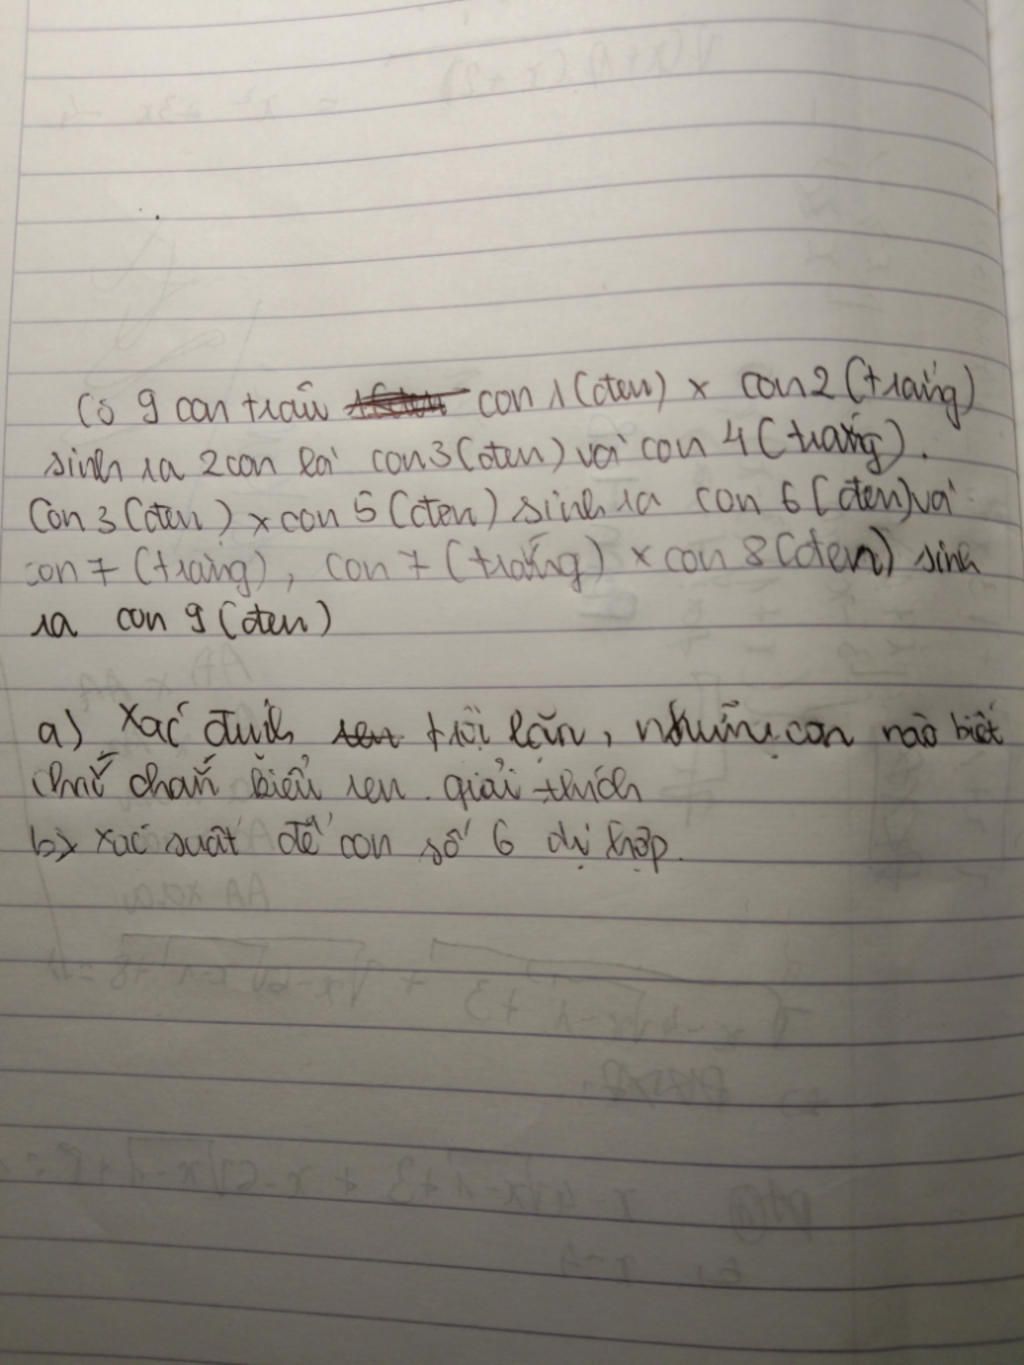 Có 9 con trâu con 1 (đen) x con 2 (trắng)
sinh ra 2 con là con 3 (đen) và con 4 (trắng).
Con 3 (đen) x con 5 (đen) sinh ra con 6 (đen) và
con 7 (trắng), con 7 (trắng) x con 8 (đen) sinh
ra con 9 (đen)
a) Xác định trội lặn, những con nào biết
chắc chắn kiểu gen. giải thích
b) xác suất để con số 6 dị hợp.